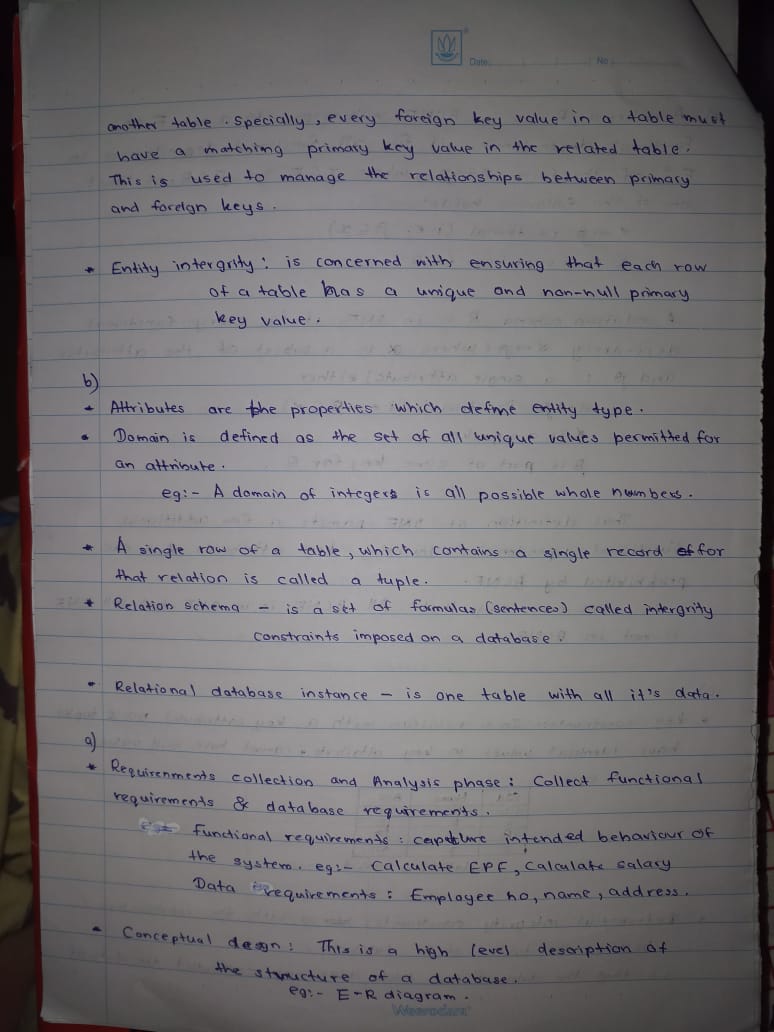 Date
No
another table. Specially, every foreign key value in a table must
have a matching primary key value in the related table.
This is used to manage the relationships between primary
and foreign keys.
* Entity intergrity: is concerned with ensuring that each row
of a table has a unique and non-null primary
key value.
b)
* Attributes are the properties which define entity type.
• Domain is defined as the set of all unique values permitted for
an attribute.
eg:- A domain of integers is all possible whole numbers.
* A single row of a table, which contains a single record for
that relation is called a tuple.
* Relation schema - is a set of formulas (sentences) called intergrity
constraints imposed on a database.
• Relational database instance - is one table with all it's data.
a)
* Requirenments collection and Analysis phase: Collect functional
requirements & database requirements.
Functional requirements: capture intended behaviour of
the system. eg:- Calculate EPF, Calculate salary
Data requirements: Employee no, name, address.
• Conceptual design: This is a high level description of
the structure of a database.
eg:- E-R diagram.
Weerodara